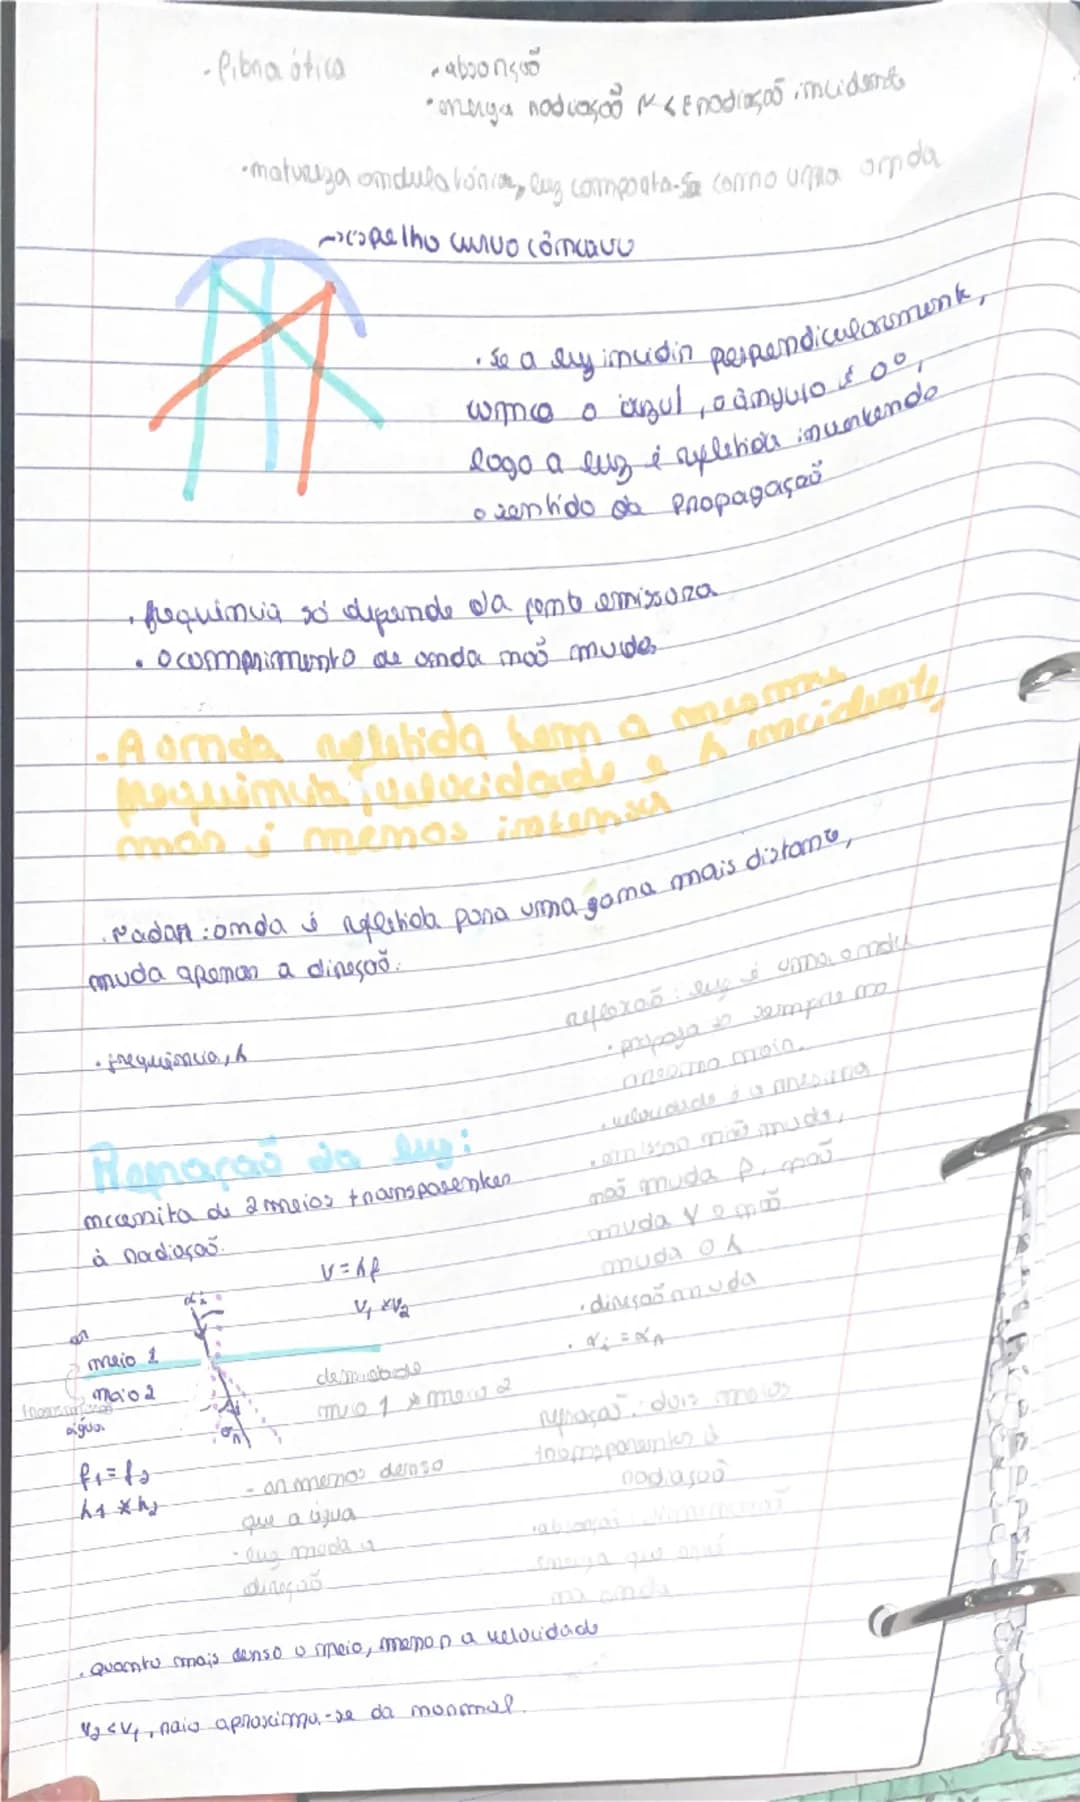 · fibra ótica
· absorção
· energia radiação r < E radiação incidente
· natureza ondulatória, luz comporta-se como uma onda
→ espelho curvo côncavo
· se a luz incidir perpendicularmente,
como o azul, o ângulo é 0°,
logo a luz é refletida invertendo
o sentido da propagação
· frequência só depende da fonte emissora
· o comprimento de onda não muda
· A onda refletida tem a mesma
frequência, velocidade e λ incidente,
mas é menos intensa
· Radar: onda é refletida para uma gama mais distante,
muda apenas a direção.
· frequência, λ
reflexão: luz é uma onda
· propaga-se sempre no
mesmo meio.
· velocidade é a mesma
· emissor não muda,
não muda f, não
muda v e não
muda o λ
· direção muda
· αi = αr
Refração da luz:
necessita de 2 meios transparentes
à radiação.
V = λf
V1 ≠ V2
αi
ar
meio 1
meio 2
água
densidade
meio 1 ≠ meio 2
f1 = f2
λ1 ≠ λ2
- ar menos denso
que a água
· luz muda a
direção
refração: dois meios
transparentes à
radiação
energia que
na onda
· quanto mais denso o meio, menor a velocidade
V2 < V1, raio aproxima-se da normal.